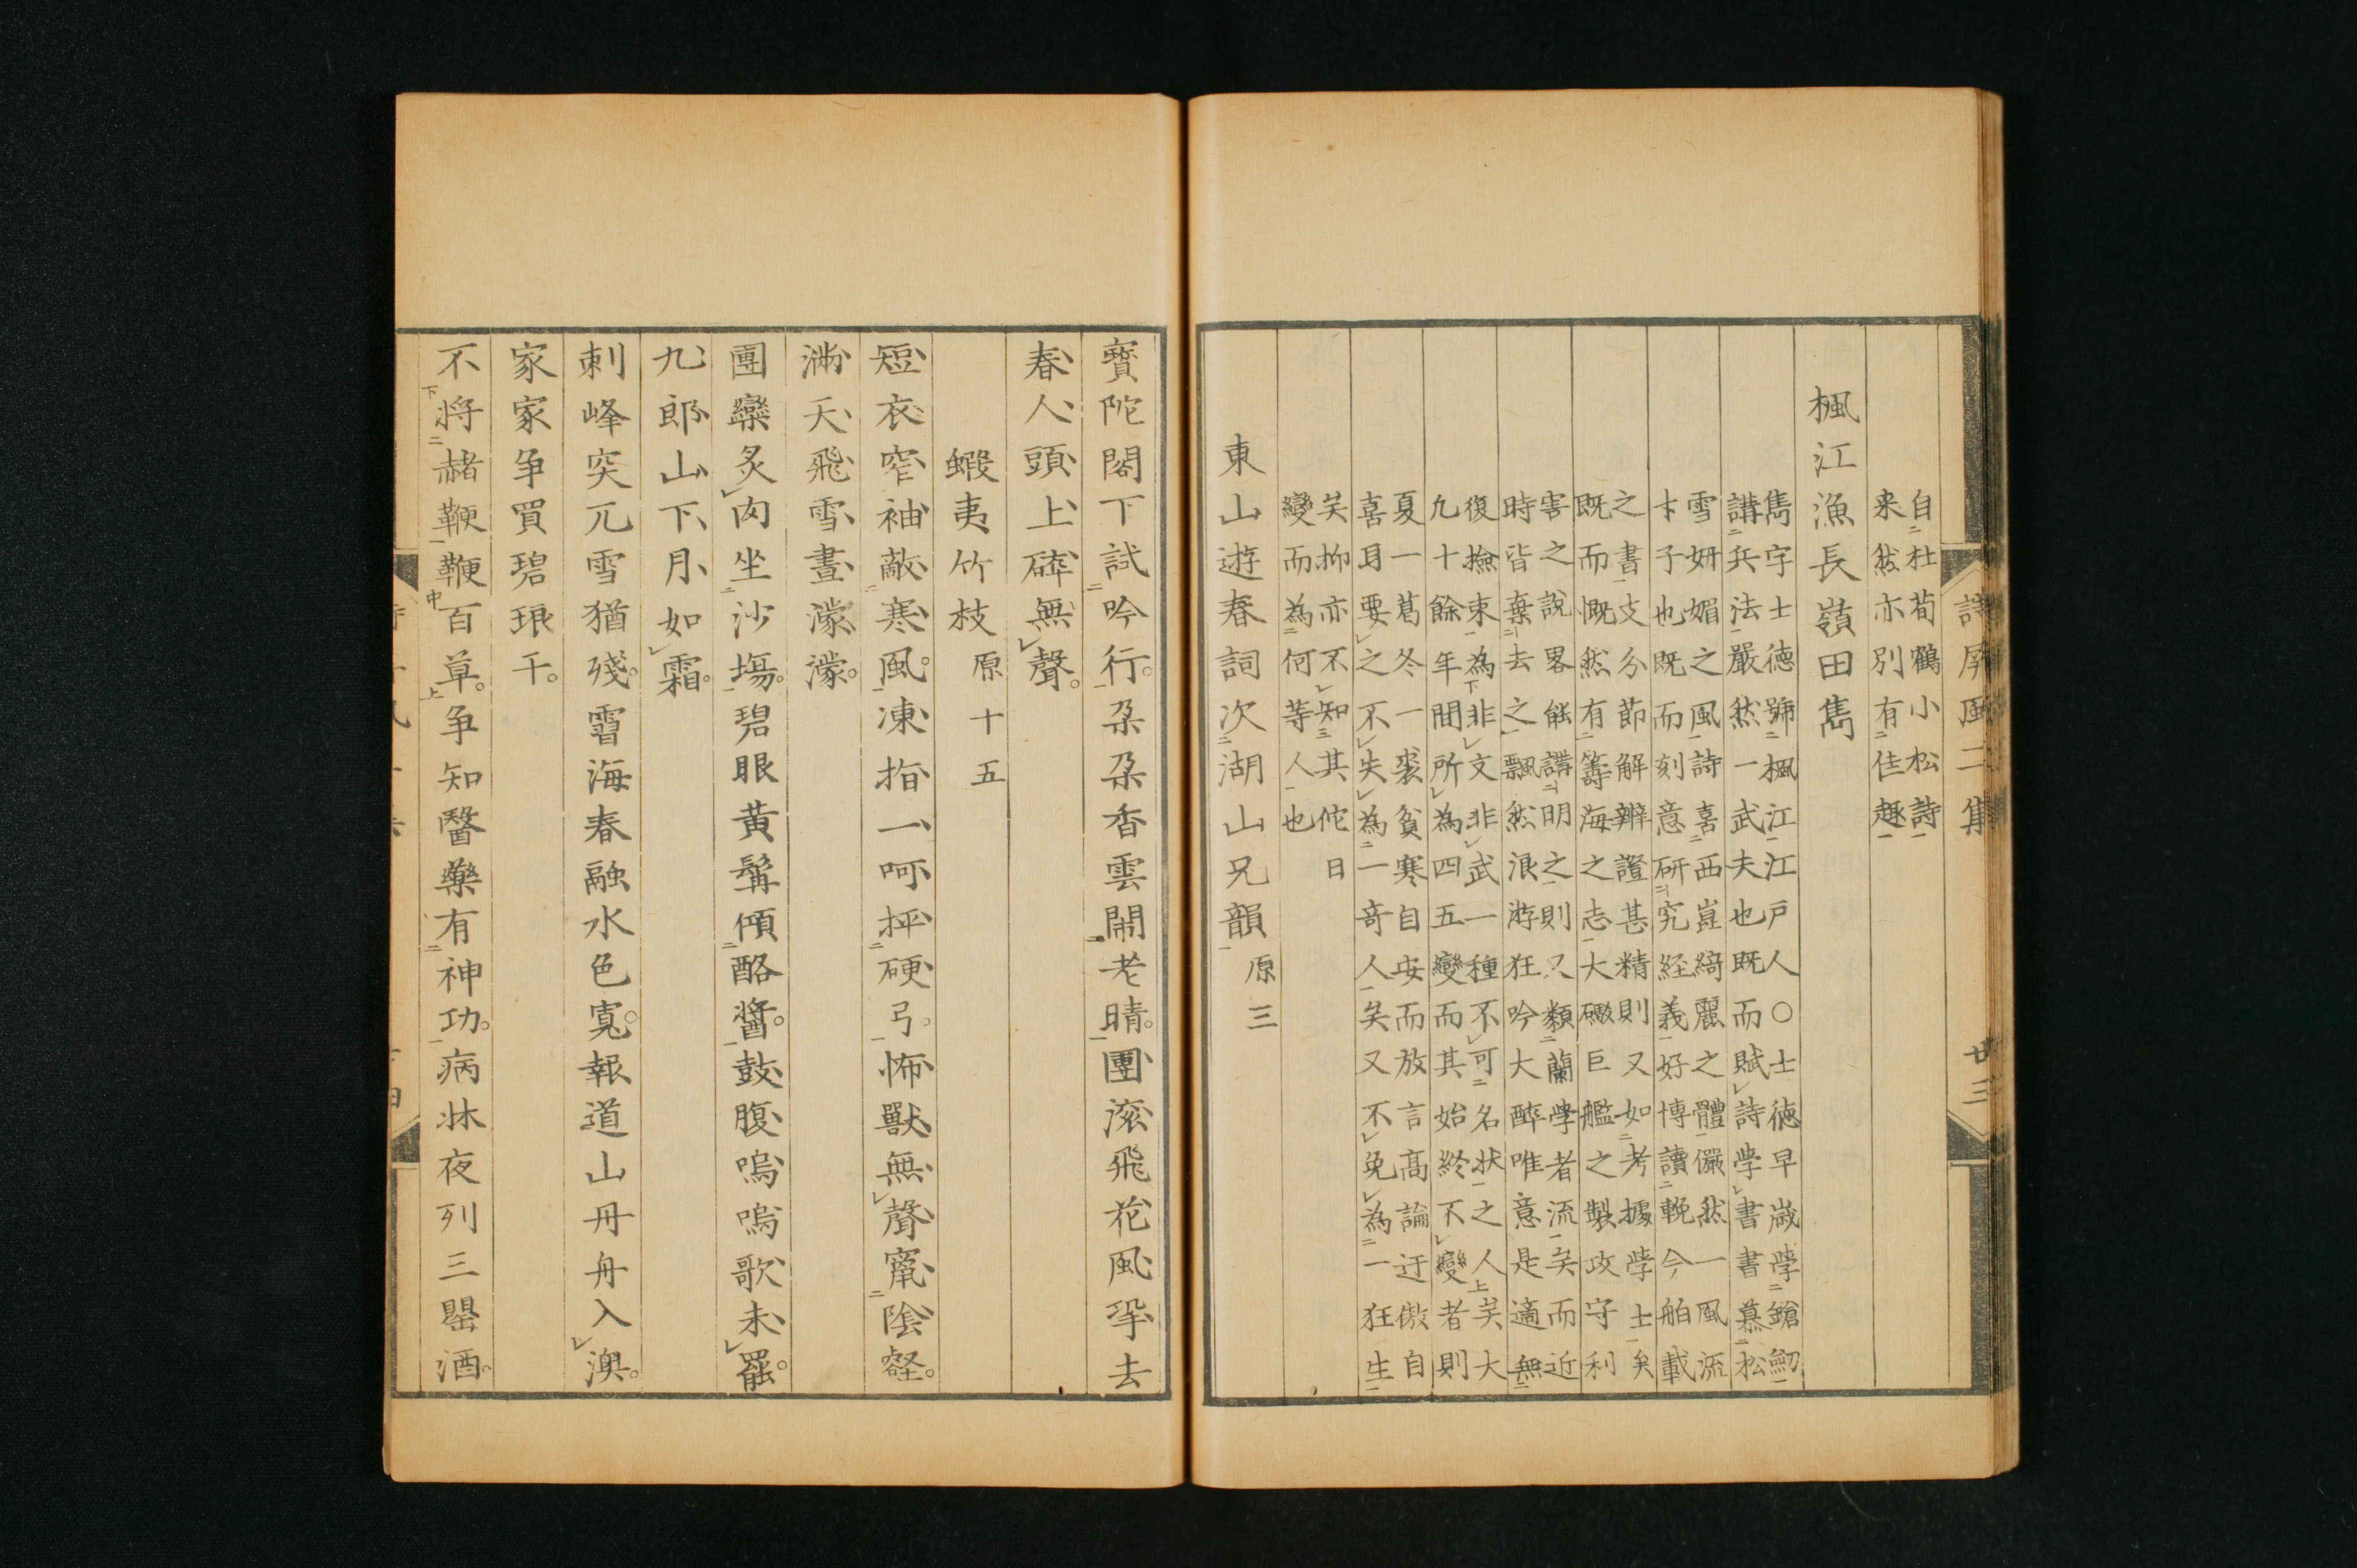 詩屏風二集
廿三
自杜荀鶴小松詩
来然亦別有佳趣
楓江漁長嶺田雋
雋字士徳號楓江江戸人○士徳早歳學鎗劒
講兵法嚴然一武夫也既而賦詩學書書慕松
雪妍媚之風詩喜西崑綺麗之體儼然一風流
才子也既而刻意研究経義好博讀輓今舶載
之書支分節解辨證甚精則又如考據學士矣
既而慨然有籌海之志大礟巨艦之製攻守利
害之說畧能講明之則又類蘭學者流矣而近
時皆棄去之飄然浪游狂吟大醉唯意是適無
復撿束為非文非武一種不可名状之人矣大
九十餘年間所為四五變而其始終不變者則
夏一葛冬一裘貧寒自安而放言高論迂傲自
喜耳要之不失為一奇人矣又不免為一狂生
矣抑亦不知其佗日
變而為何等人也
東山遊春詞次湖山兄韻 原三
寶陀閣下試吟行朶朶香雲開老晴團滚飛花風挙去
春人頭上碎無聲
蝦夷竹枝 原十五
短衣窄袖敵寒風凍指一呵抨硬弓怖獸無聲竄陰壑
滿天飛雪晝濛濛
團欒炙肉坐沙塲碧眼黄髯傾酪醬鼓腹嗚嗚歌未罷
九郎山下月如霜
刺峰突兀雪猶殘霤海春融水色寛報道山丹舟入澳
家家争買碧琅干
不将赭鞭鞭百草争知醫藥有神功病牀夜列三罌酒